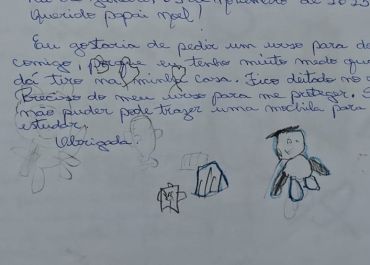 de 2025
Querido papai noel!
Eu gostaria de pedir um urso para do
comigo, porque eu tenho muito medo que
dá tiro na minha casa. Fico deitado no
Preciso do meu urso para me proteger. S
não puder pode trazer uma mochila para
estudar.
Obrigada.